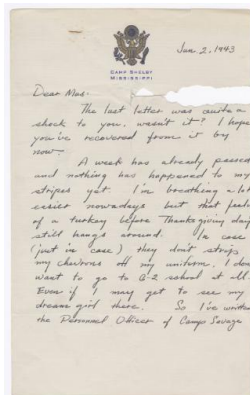 CAMP SHELBY
MISSISSIPPI
Jan 2, 1943
Dear Mas-
The last letter was quite a
shock to you, wasn't it? I hope
you've recovered from it by
now.
A week has already passed
and nothing has happened to my
stripes yet. I'm breathing a lot
easier nowadays but that feeling
of a turkey before Thanksgiving day
still hangs around. In case
(just in case) they don't strip
my chevrons off my uniform, I don't
want to go to G-2 school at all.
Even if I may get to see my
dream girl there. So I've written
the Personnel Officer of Camp Savage